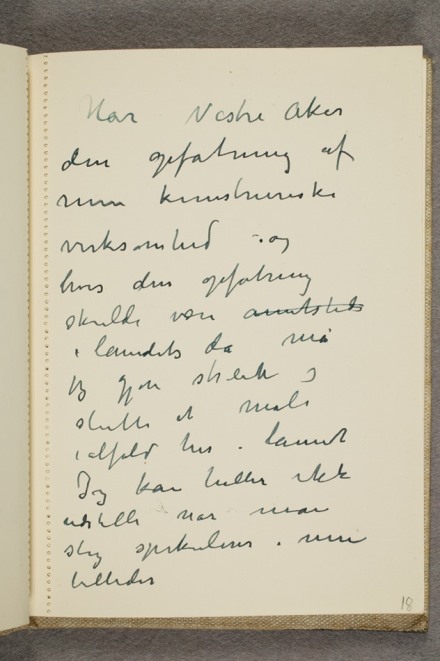 Har Vestre Aker
den opfatning af
min kunstneriske
virksomhed – og
hvis den opfatning
skulde være andetsteds
i landets da må
jeg gjøre streik og
slutte at male
ialfald her i landet
Jeg kan heller ikke
udstille når man
slig spekulerer i mine
billeder
18